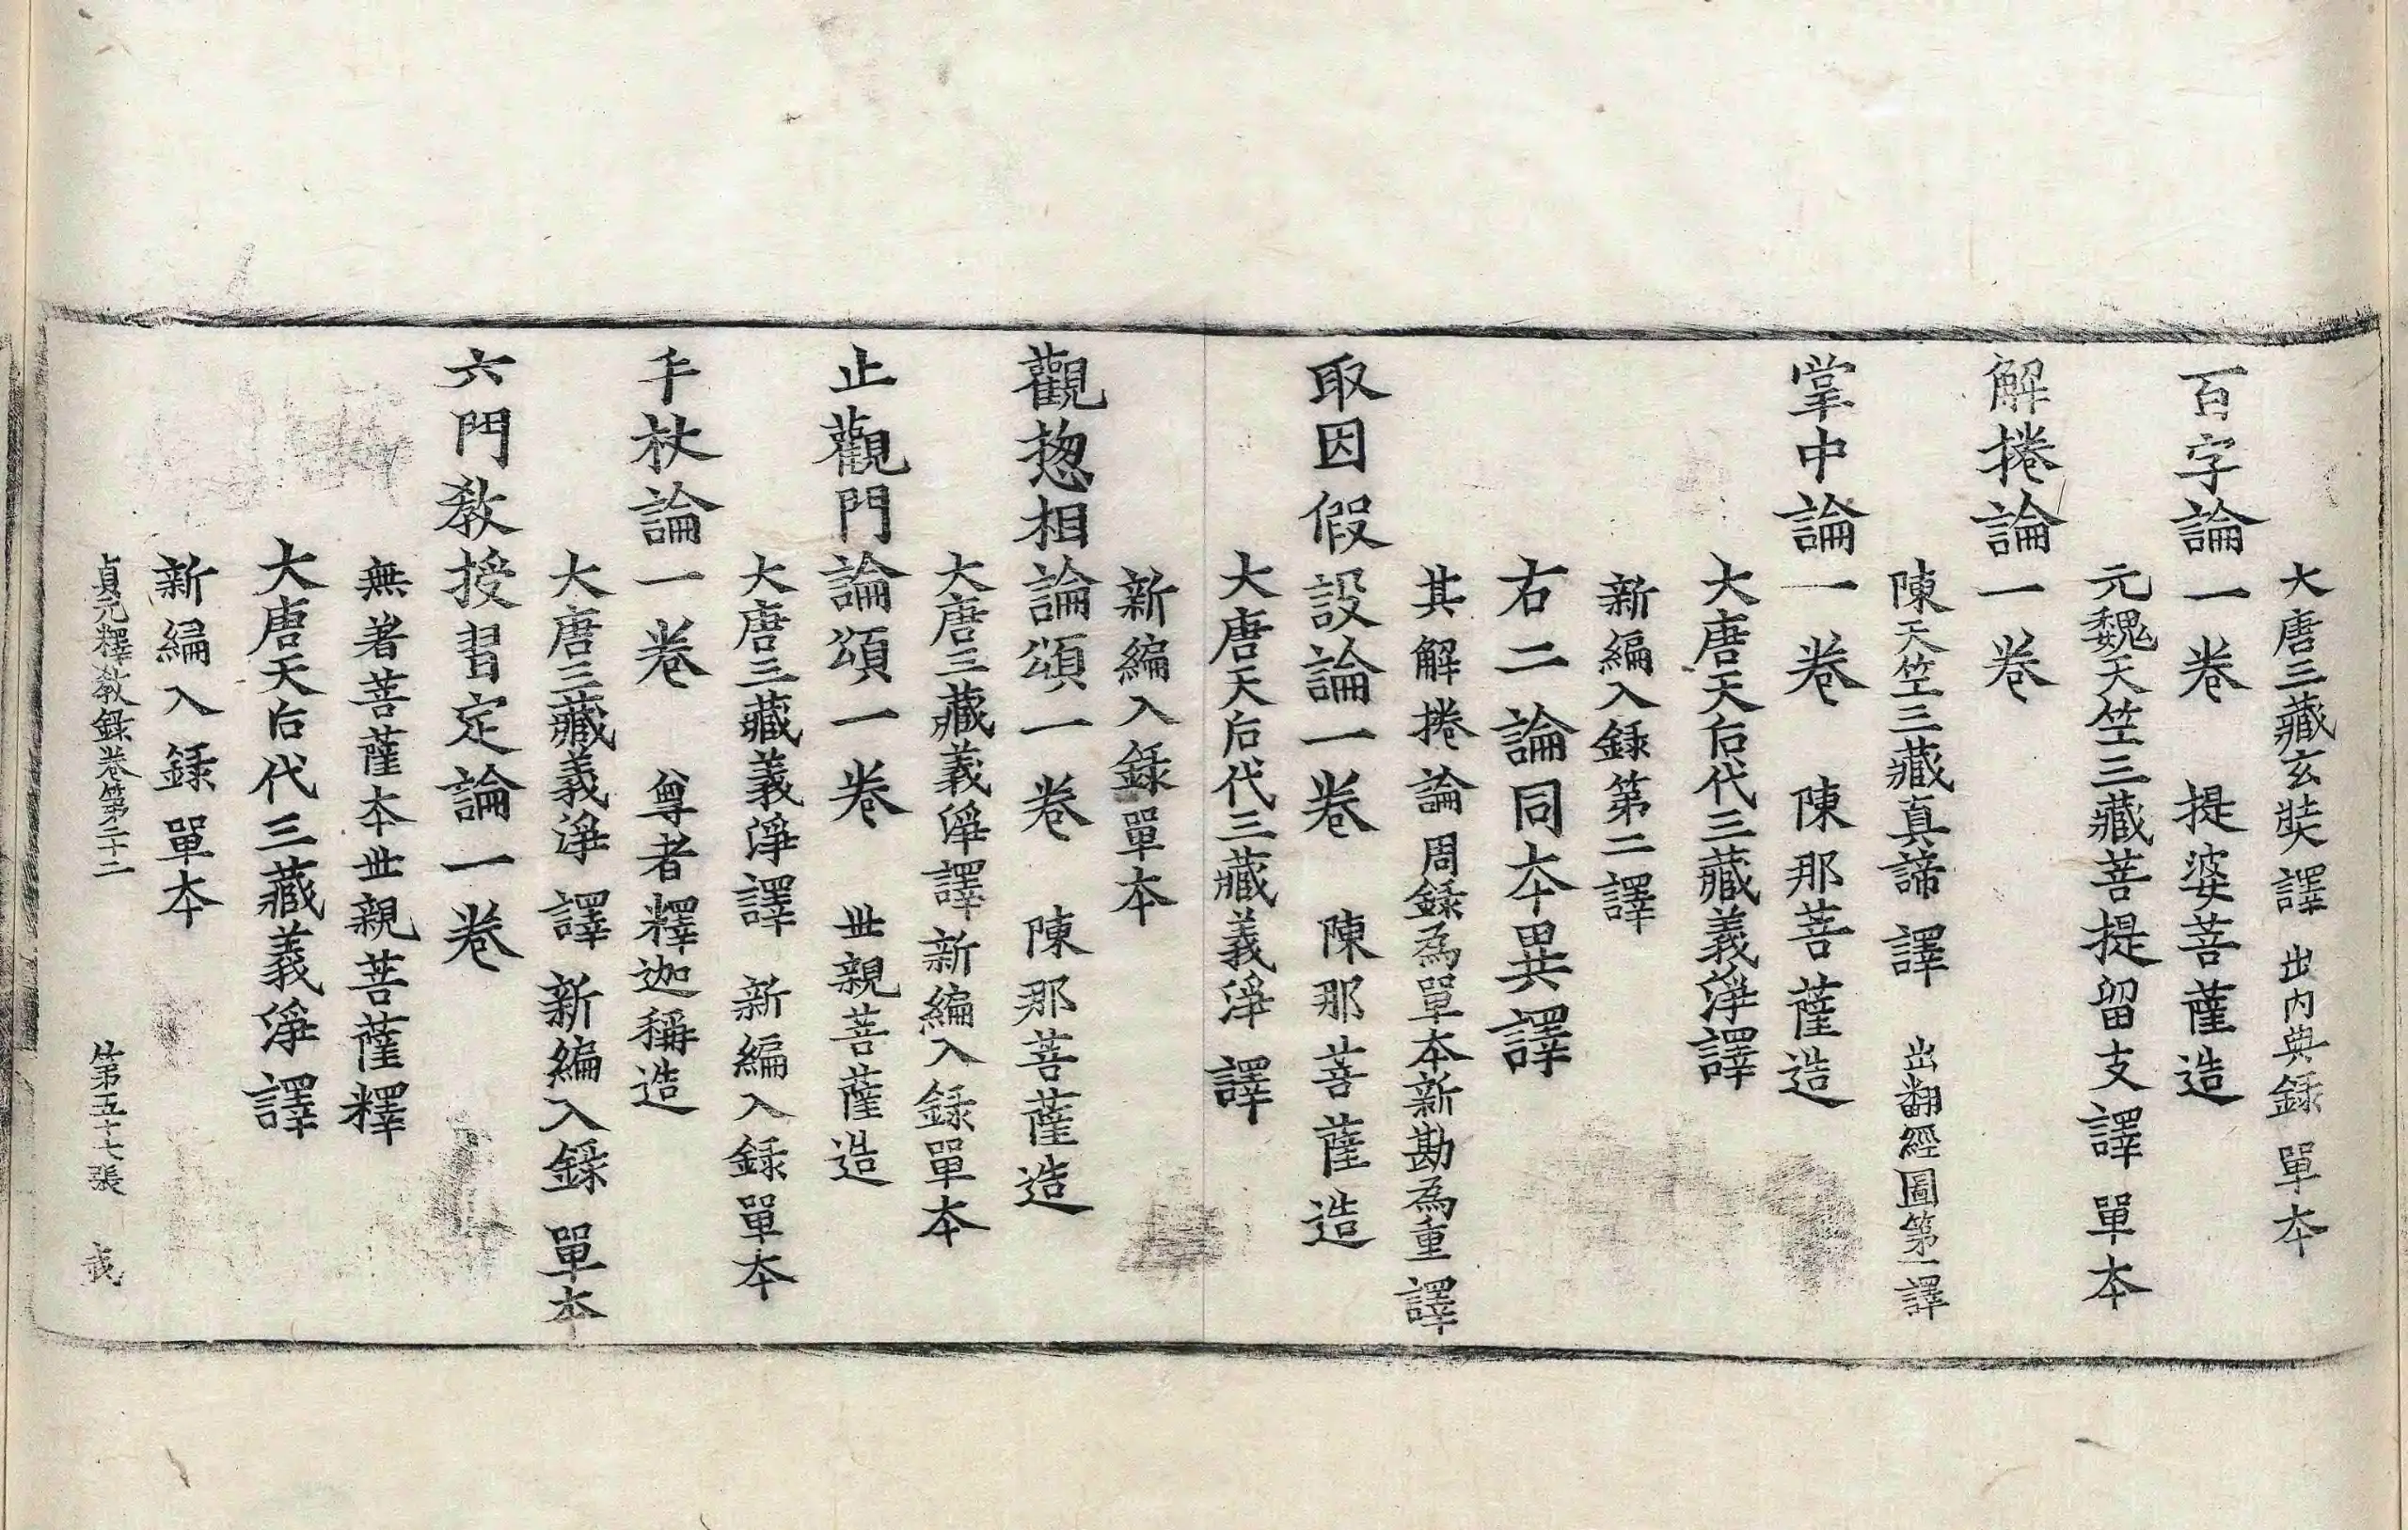 大唐三藏玄奘譯 出內典錄 單本
百字論一卷 提婆菩薩造
元魏天竺三藏菩提留支譯 單本
解捲論一卷
陳天竺三藏真諦譯 出翻經圖第一譯
掌中論一卷 陳那菩薩造
大唐天后代三藏義淨譯
新編入錄第二譯
右二論同本異譯
其解捲論周錄為單本新勘為重譯
取因假設論一卷 陳那菩薩造
大唐天后代三藏義淨譯
新編入錄單本
觀惣相論頌一卷 陳那菩薩造
大唐三藏義淨譯新編入錄單本
止觀門論頌一卷 世親菩薩造
大唐三藏義淨譯 新編入錄單本
手杖論一卷 尊者釋迦稱造
大唐三藏義淨譯 新編入錄 單本
六門教授習定論一卷
無著菩薩本世親菩薩釋
大唐天后代三藏義淨譯
新編入錄單本
貞元釋教錄卷第二十二 第五十七張